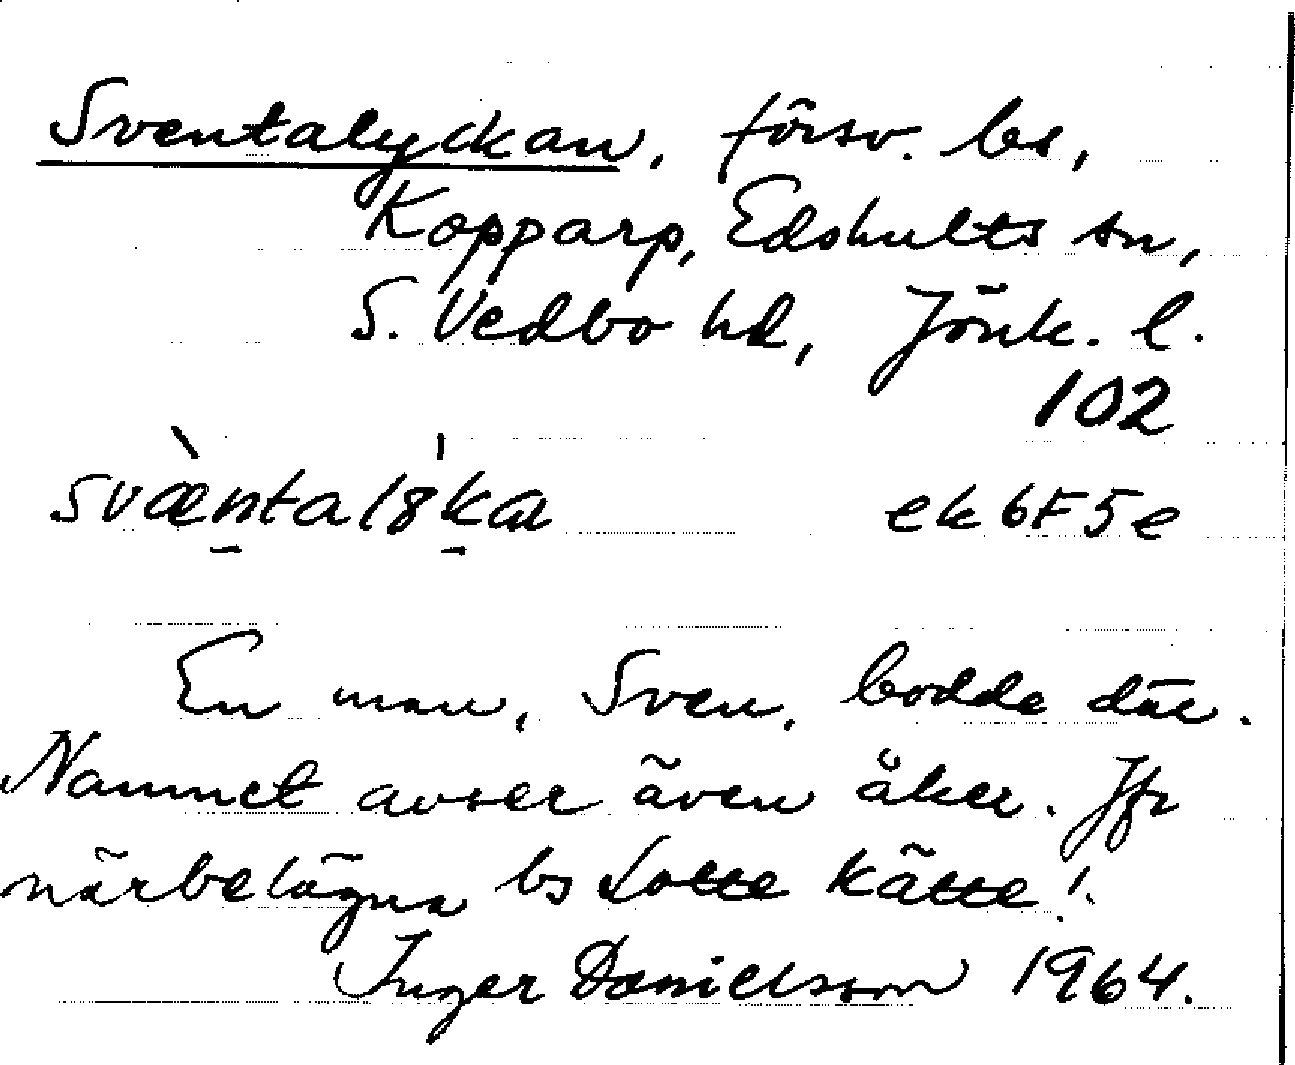 Sventalyckan, försv. bs,
Kopparp, Edshults sn,
S. Vedbo hd, Jönk. l.
102
svæ̀nta lȣ̍ka ek 6F5e
En man, Sven, bodde där.
Namnet avser även åker. Jfr
närbelägna bs Lotte kätte!
Inger Danielsson 1964.